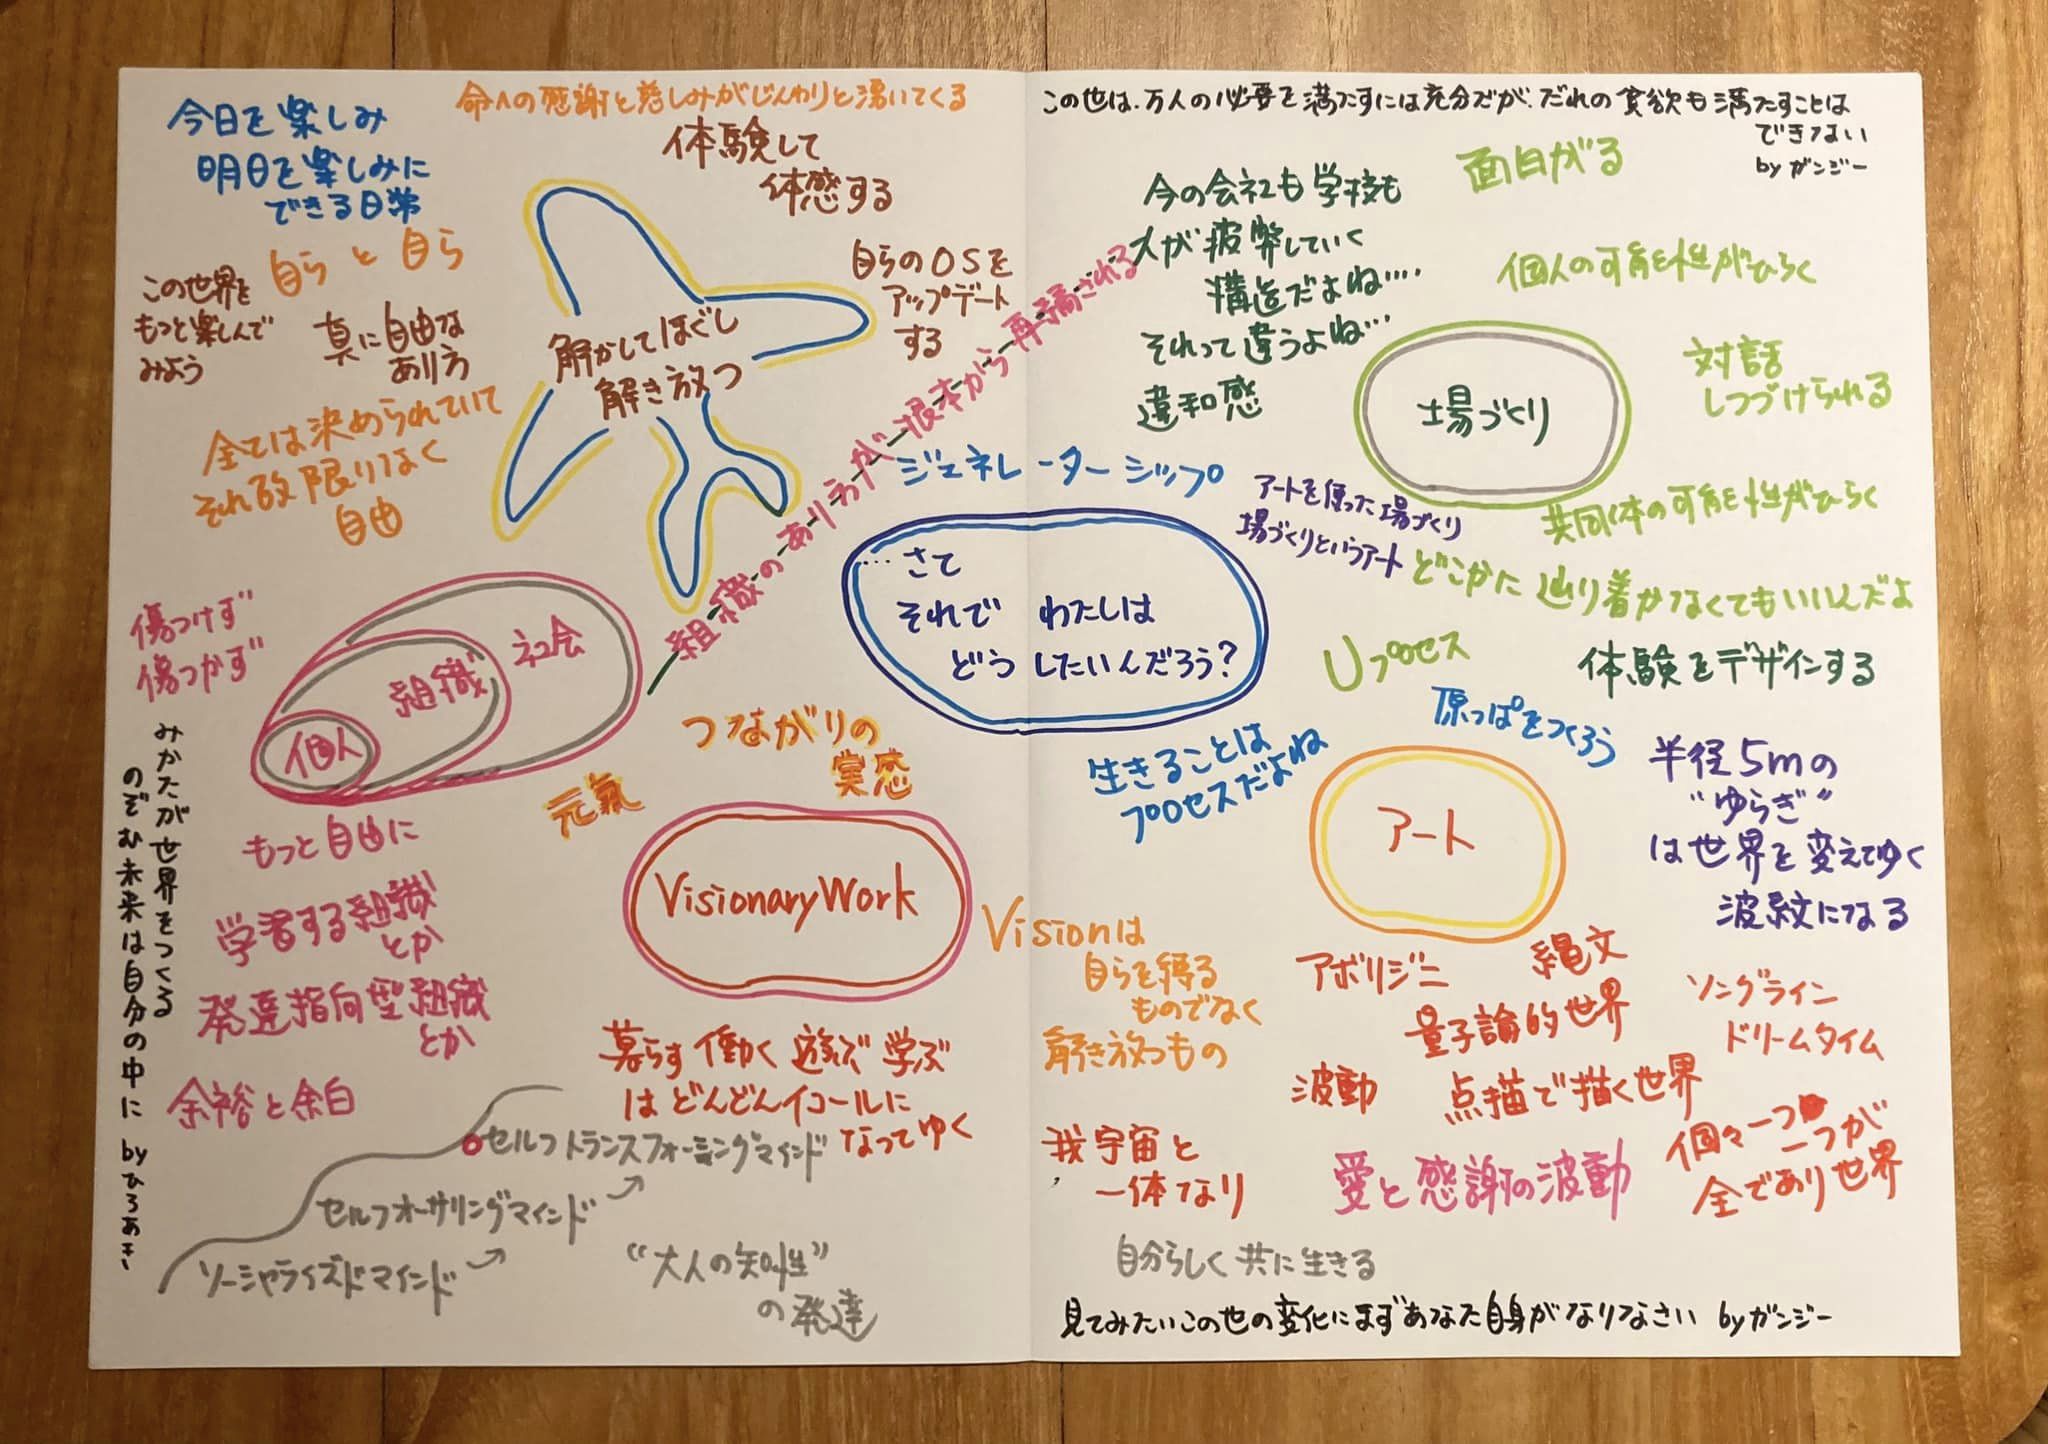 今日を楽しみ
明日を楽しみに
できる日常
命への感謝と慈しみがじんわりと湧いてくる
体験して
体感する
この世界を
もっと楽しんで
みよう
自らと自ら
真に自由な
あり方
全ては決められていて
それ故限りなく
自由
解かしてほぐし
解き放つ
自らのOSを
アップデート
する
組織のありようが根本から再構される
傷つけず
傷つかず
個人
組織
社会
みかたが世界をつくる
のぞむ未来は自分の中に byひろあき
もっと自由に
学習する組織
とか
発達指向型組織
とか
余裕と余白
つながりの
実感
元氣
VisionaryWork
暮らす働く遊ぶ学ぶ
はどんどんイコールに
なってゆく
セルフトランスフォーミングマインド
セルフオーサリングマインド
ソーシャライズドマインド
“大人の知性”
の発達
この世は、万人の必要を満たすには充分だが、だれの食欲も満たすことは
できない
by ガンジー
今の会社も学校も
人が疲弊していく
構造だよね…
それって違うよね…
違和感
面白がる
個人の可能性がひらく
場づくり
対話
しつづけられる
共同体の可能性がひらく
ジェネレーターシップ
アートを使った場づくり
場づくりというアート
どこかに辿り着かなくてもいいんだよ
…さて
それで わたしは
どうしたいんだろう?
Uプロセス
体験をデザインする
原っぱをつくろう
生きることは
プロセスだよね
アート
半径5mの
“ゆらぎ”
は世界を変えてゆく
波紋になる
Visionは
自らを縛る
ものでなく
解き放つもの
アボリジニ
縄文
量子論的世界
ソングライン
ドリームタイム
波動
点描で描く世界
我宇宙と
一体なり
愛と感謝の波動
個々一つ一つが
全であり世界
自分らしく共に生きる
見てみたいこの世の変化にまずあなた自身がなりなさい byガンジー